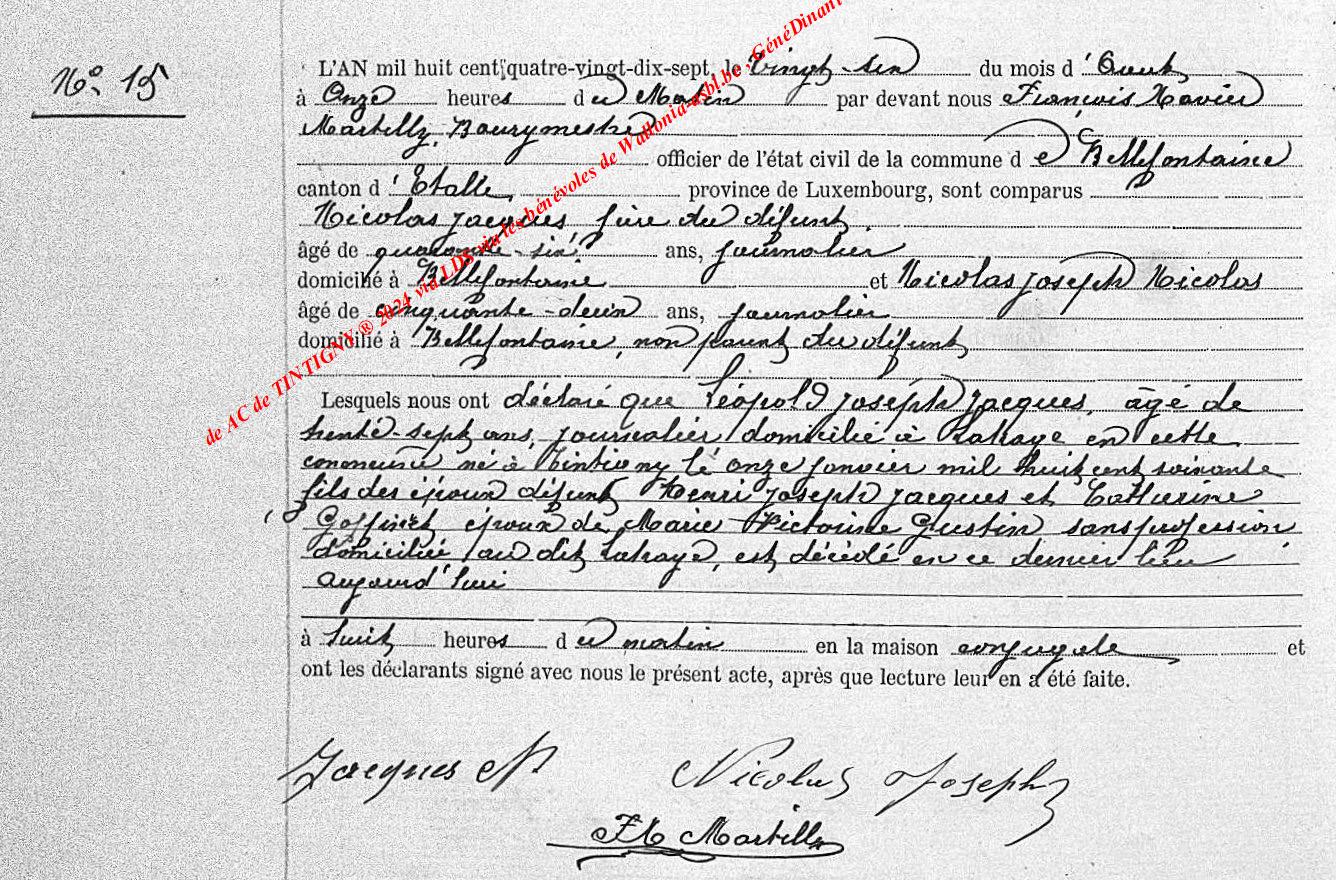 N° 15
L'AN mil huit cent quatre-vingt-dix-sept, le Vingt-six du mois d' Août
à Onze heures du Matin par devant nous François Xavier
Martilly, Bourgmestre
officier de l'état civil de la commune de Bellefontaine
canton d' Etalle, province de Luxembourg, sont comparus
Nicolas Jacques, frère du défunt
âgé de quarante-six ans, journalier
domicilié à Bellefontaine et Nicolas Joseph Nicolas
âgé de cinquante-deux ans, journalier
domicilié à Bellefontaine, non parent du défunt
Lesquels nous ont déclaré que Léopold Joseph Jacques, âgé de
trente-sept ans, journalier domicilié à Lahage en cette
commune né à Tintigny le onze janvier mil huit cent soixante
fils des époux défunts Henri Joseph Jacques et Catherine
Goffinet époux de Marie Victorine Gustin sans profession
domiciliée au dit Lahage, est décédé en ce dernier lieu
aujourd'hui
à huit heures du matin en la maison conjugale et
ont les déclarants signé avec nous le présent acte, après que lecture leur en a été faite.
Jacques N
Nicolas Joseph
FX Martilly
de AC de TINTIGNY ® 2024 via LDS via les bénévoles de Wallonia-asbl.be, GénéDinant